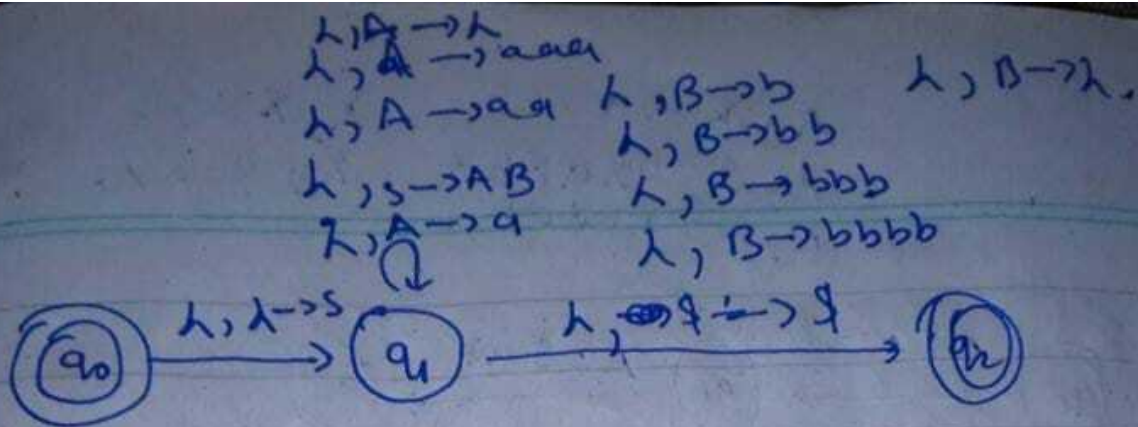 λ, A → λ
λ, A → aaa
λ, A → aa
λ, s → A B
λ, A → a
λ, B → b
λ, B → bb
λ, B → bbb
λ, B → bbbb
λ, B → λ.
q0
λ, λ → s
q1
λ, $ → $
q2